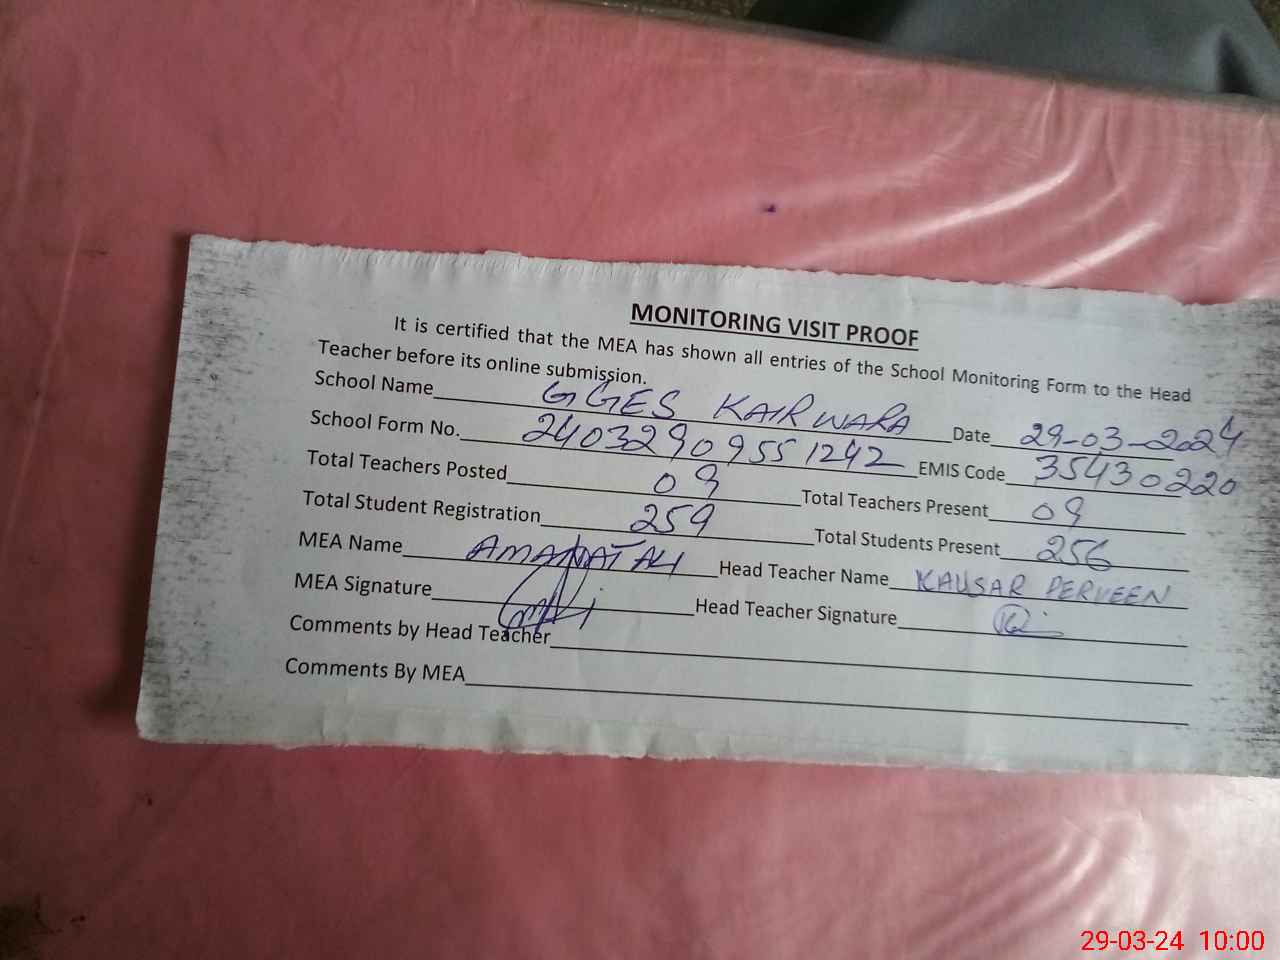 MONITORING VISIT PROOF
It is certified that the MEA has shown all entries of the School Monitoring Form to the Head
Teacher before its online submission.
School Name GGES KAIRWARA Date 29-03-2024
School Form No. 24032909551242 EMIS Code 35430220
Total Teachers Posted 09 Total Teachers Present 09
Total Student Registration 259 Total Students Present 256
MEA Name AMANAT ALI Head Teacher Name KAUSAR PERVEEN
MEA Signature Head Teacher Signature
Comments by Head Teacher
Comments By MEA
29-03-24 10:00